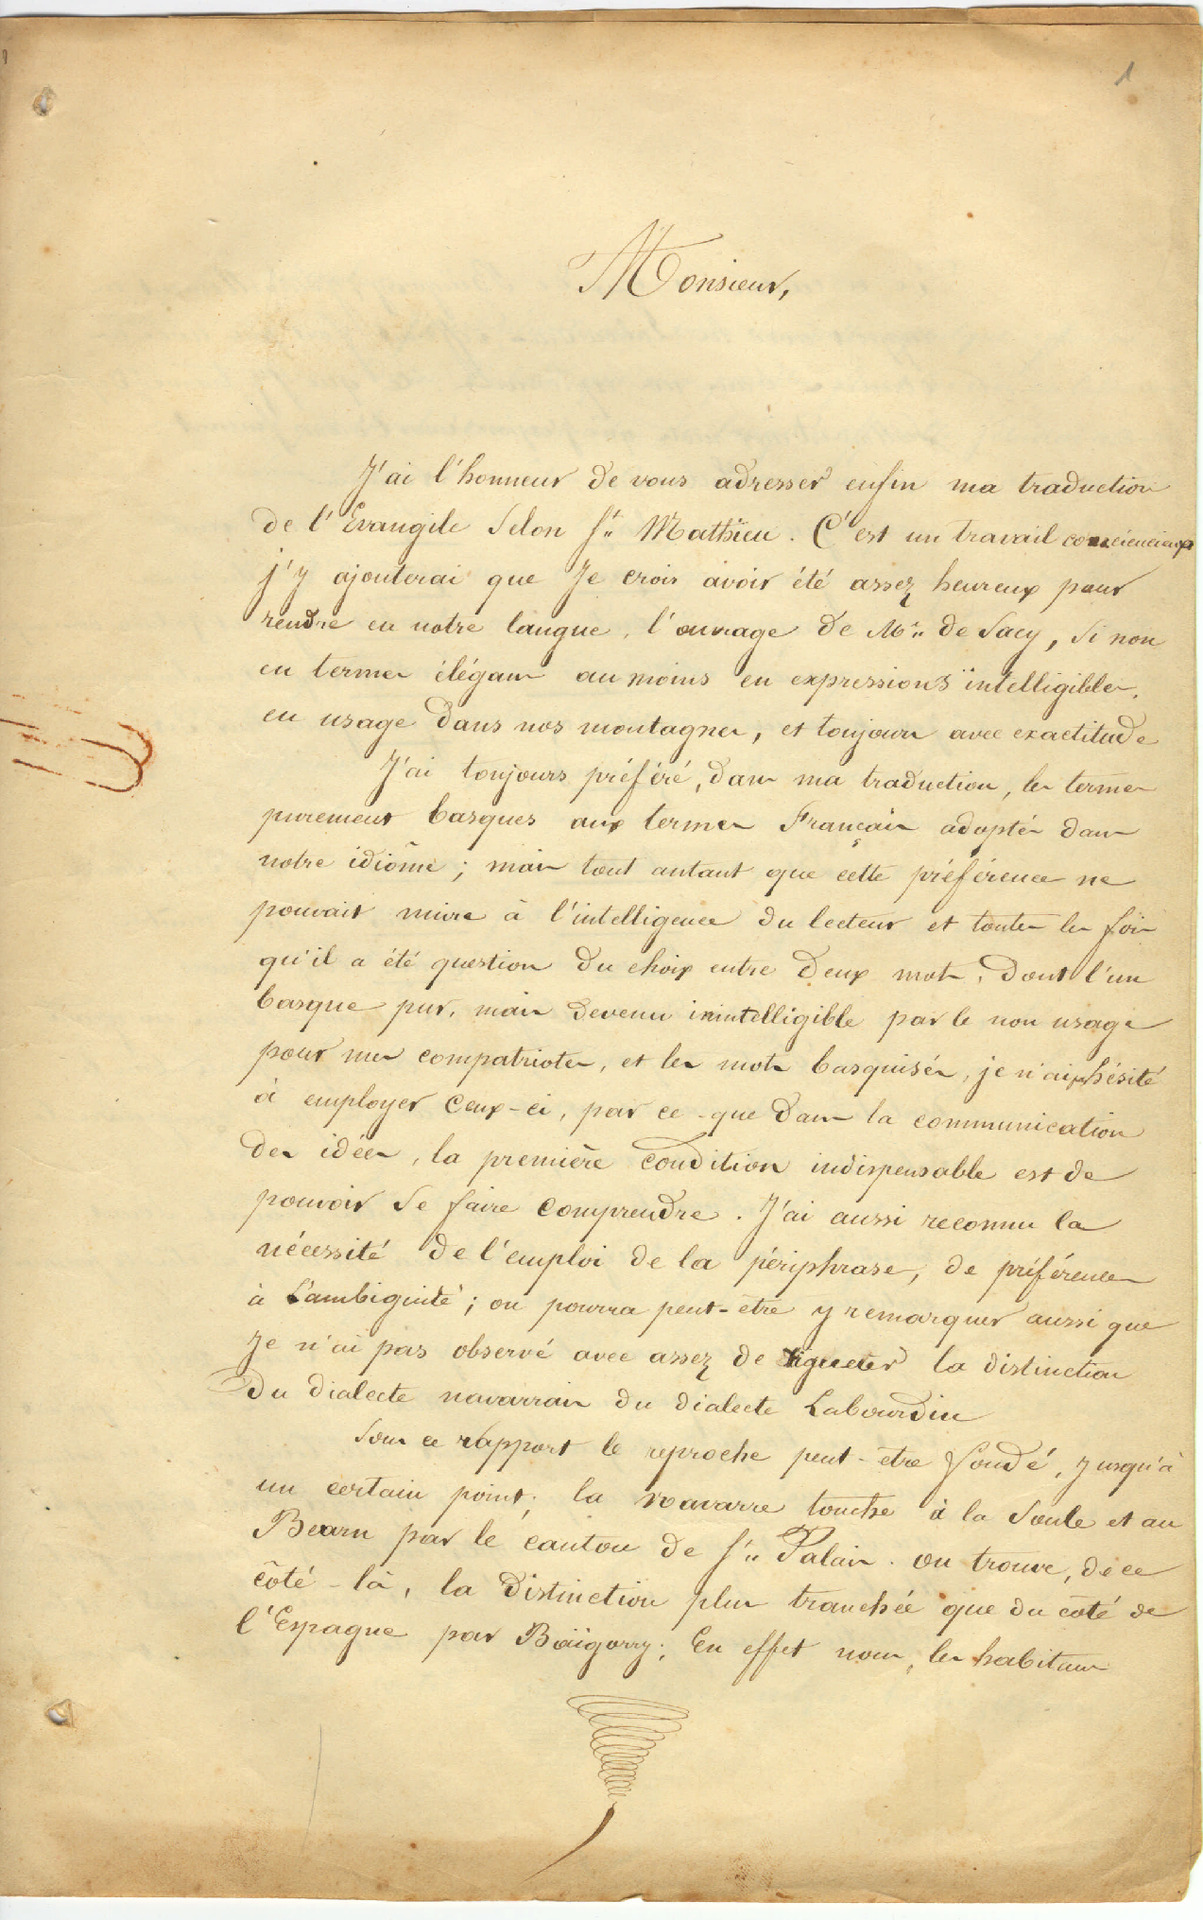 1
Monsieur,
J'ai l'honneur de vous adresser enfin ma traduction
de l'Evangile Selon St Mathieu. C'est un travail consciencieux
j'y ajouterai que Je crois avoir été assez heureux pour
rendre en notre langue, l'ouvrage de Mr. de Sacy, Si non
en termes élégans au moins en expressions intelligibles,
en usage dans nos montagnes, et toujours avec exactitude
J'ai toujours préféré, dans ma traduction, les termes
purement basques aux termes Français adoptés dans
notre idiôme; mais tout autant que cette préférence ne
pouvait nuire à l'intelligence du lecteur et toutes les fois
qu'il a été question du choix entre deux mots, dont l'un
basque pur, mais devenu inintelligible par le non usage
pour mes compatriotes, et les mots basquisés, je n'ai pas hésité
à employer Ceux-ci, par ce-que dans la communication
des idées, la première condition indispensable est de
pouvoir Se faire comprendre. J'ai aussi reconnu la
nécessité de l'emploi de la périphrase, de préférence
à L'ambiguité; on pourra peut-etre y remarquer aussi que
Je n'ai pas observé avec assez de la distinction
du dialecte navarrais du dialecte Labourdin
Sous ce rapport le reproche peut-etre fondé, jusqu'à
un certain point; la Navarre touche à la Soule et au
Bearn par le canton de St Palais. on trouve, de ce
côté-là, la distinction plus tranchée que du coté de
l'Espagne par Baïgorry; En effet nous, les habitans